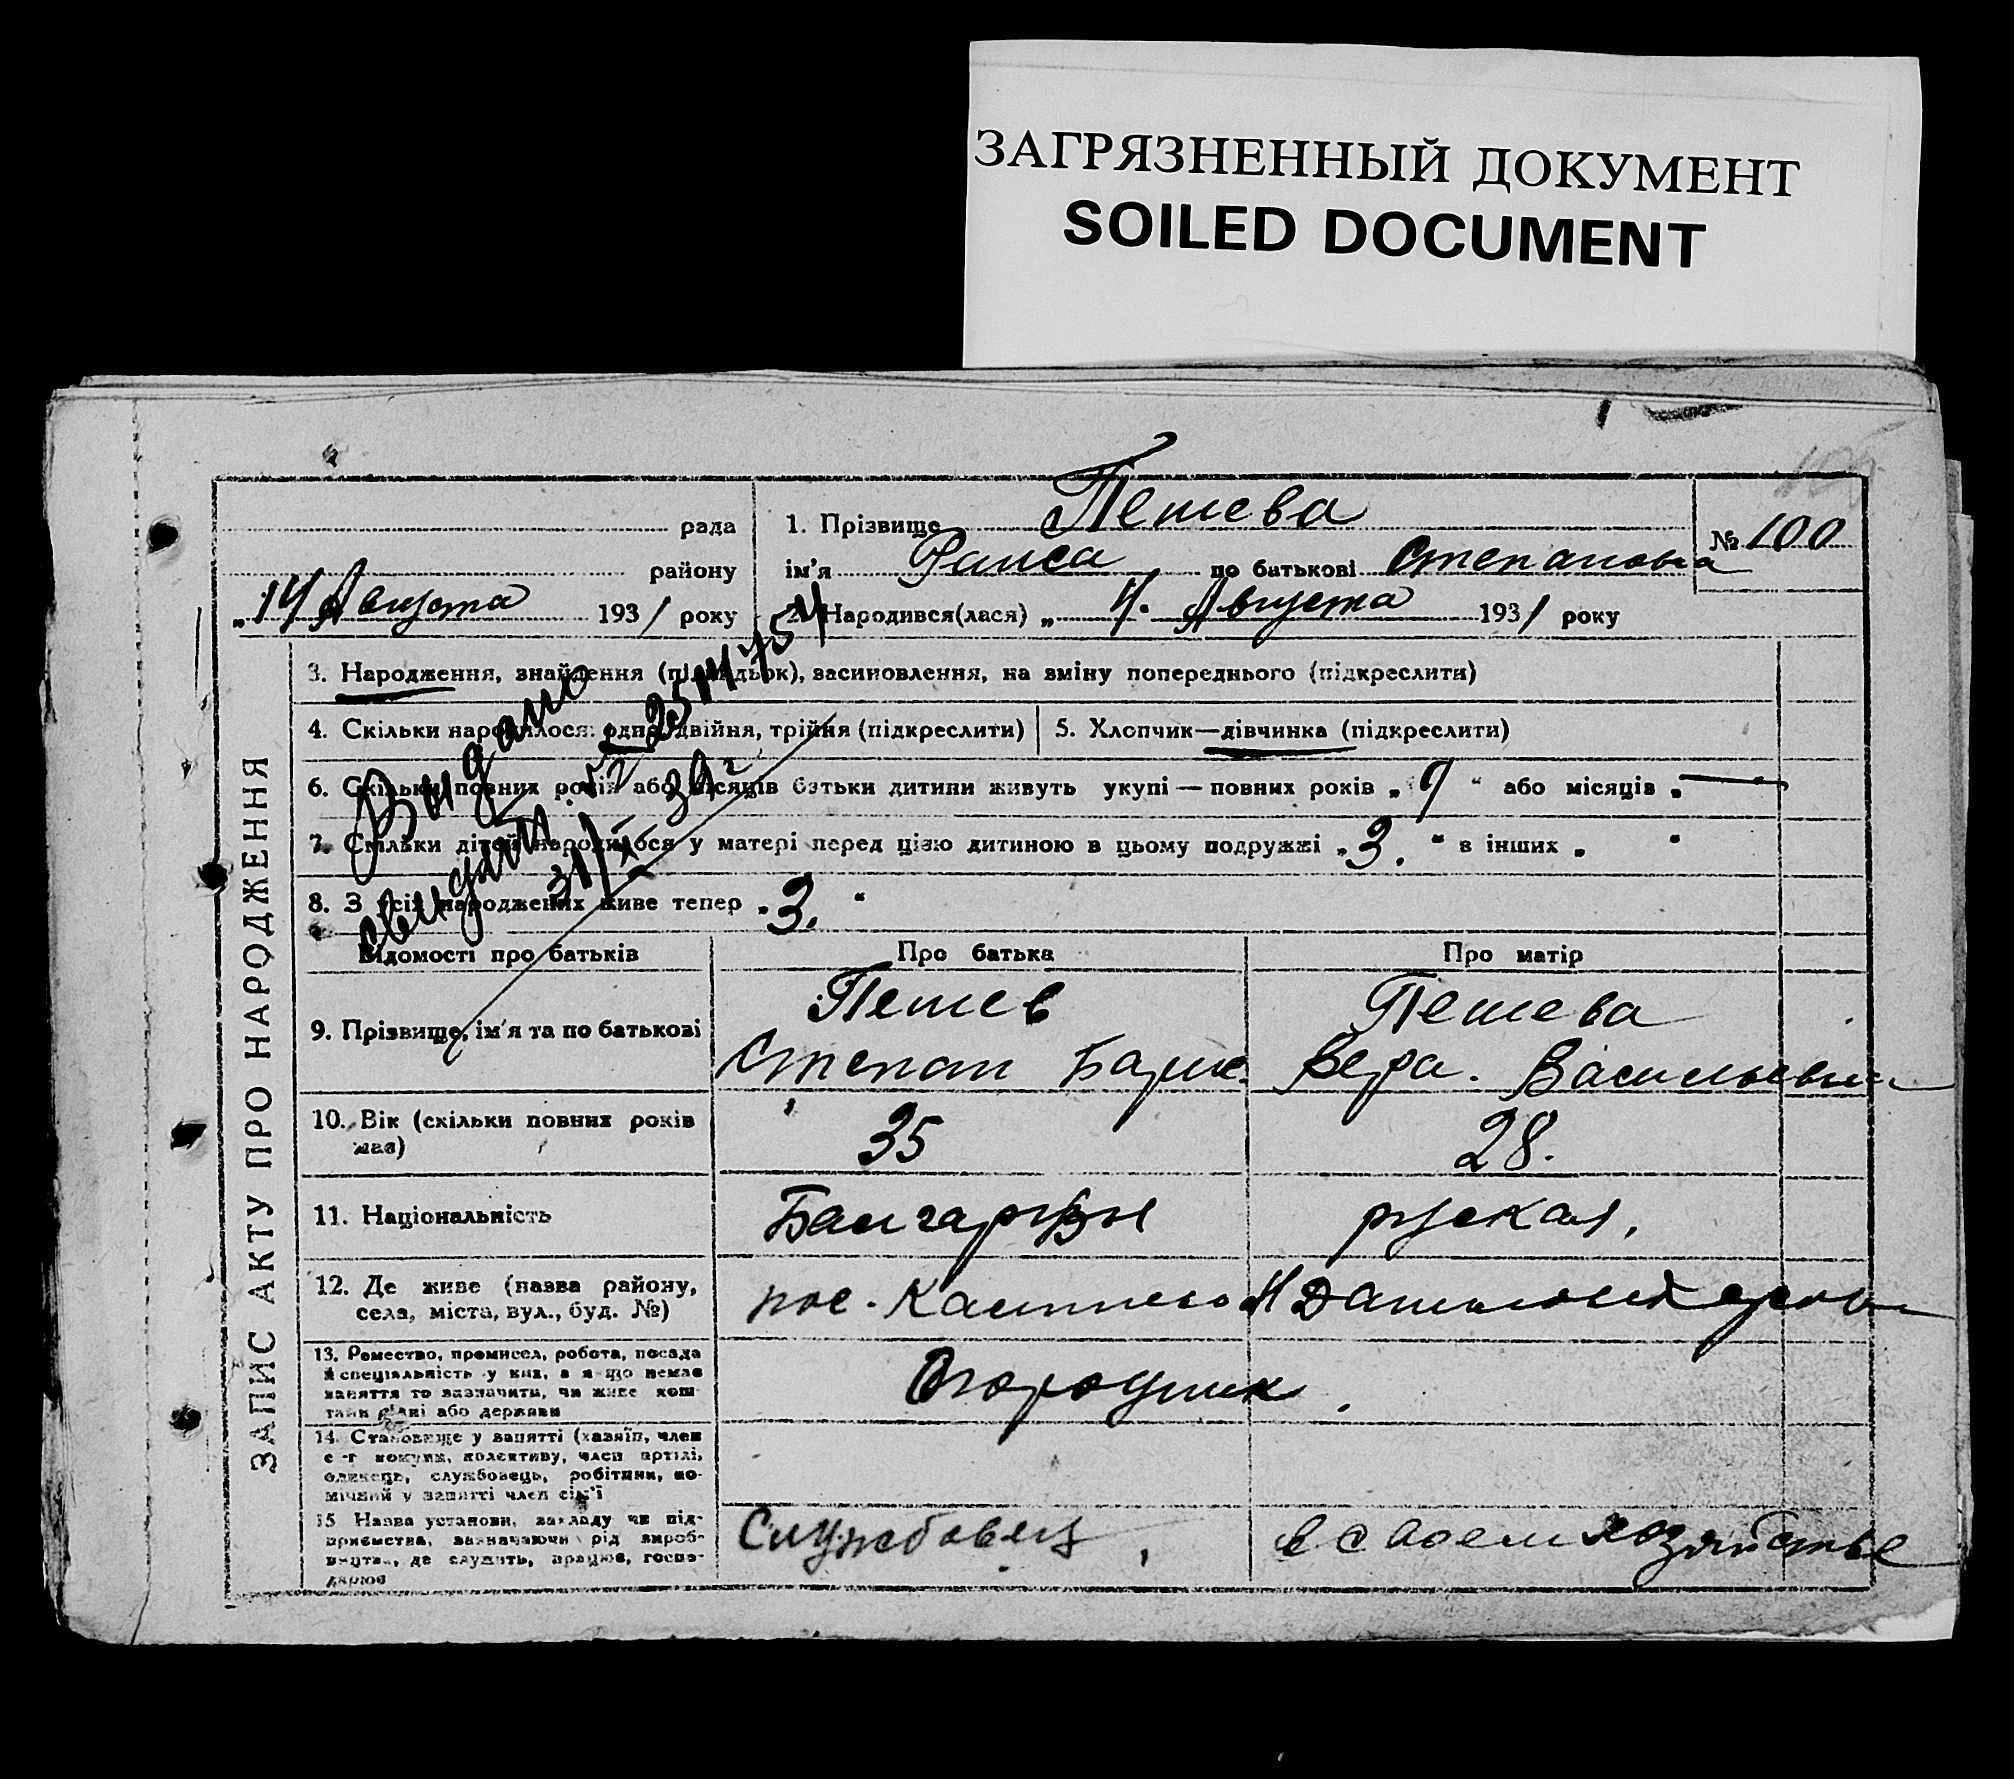 ЗАГРЯЗНЕННЫЙ ДОКУМЕНТ
SOILED DOCUMENT
рада
району
„14 Августа 1931 року
1. Прізвище Пешева
ім'я Раиса по батькові Степановна
2. Народився(лася) „4. Августа 1931 року
№ 100
ЗАПИС АКТУ ПРО НАРОДЖЕННЯ
3. Народження, знайдення (підкидьок), засиновлення, на зміну попереднього (підкреслити)
4. Скільки народилося: одна, двійня, трійня (підкреслити)
5. Хлопчик—дівчинка (підкреслити)
6. Скільки повних років або місяців батьки дитини живуть укупі — повних років „9“ або місяців „—
7. Скільки дітей народилося у матері перед цією дитиною в цьому подружжі „3.“ в інших „ “
8. З усіх народжених живе тепер „3.“
Выдано
свидет. №
31/X 39г
Відомості про батьків
Про батька
Про матір
9. Прізвище, ім'я та по батькові
Пешев
Степан
Пешева
Вера. Васильевна
10. Вік (скільки повних років
має)
35
28.
11. Національність
руская.
12. Де живе (назва району,
села, міста, вул., буд. №)
пос.
13. Ремество, промисел, робота, посада
й спеціяльність у них, а якщо немає
заняття то зазначити, чи живе кош-
тами рідні або держави
Огородник.
14. Становище у занятті (хазяїн, член
с-г комуни, колективу, член артілі,
одинець, службовець, робітник, по-
мічний у занятті член сім'ї
15 Назва установи, закладу чи під-
приємства, зазначаючи рід вироб-
ництва, де служить, працює, госпо-
дарює
Службовец,
в своем хозяйстве